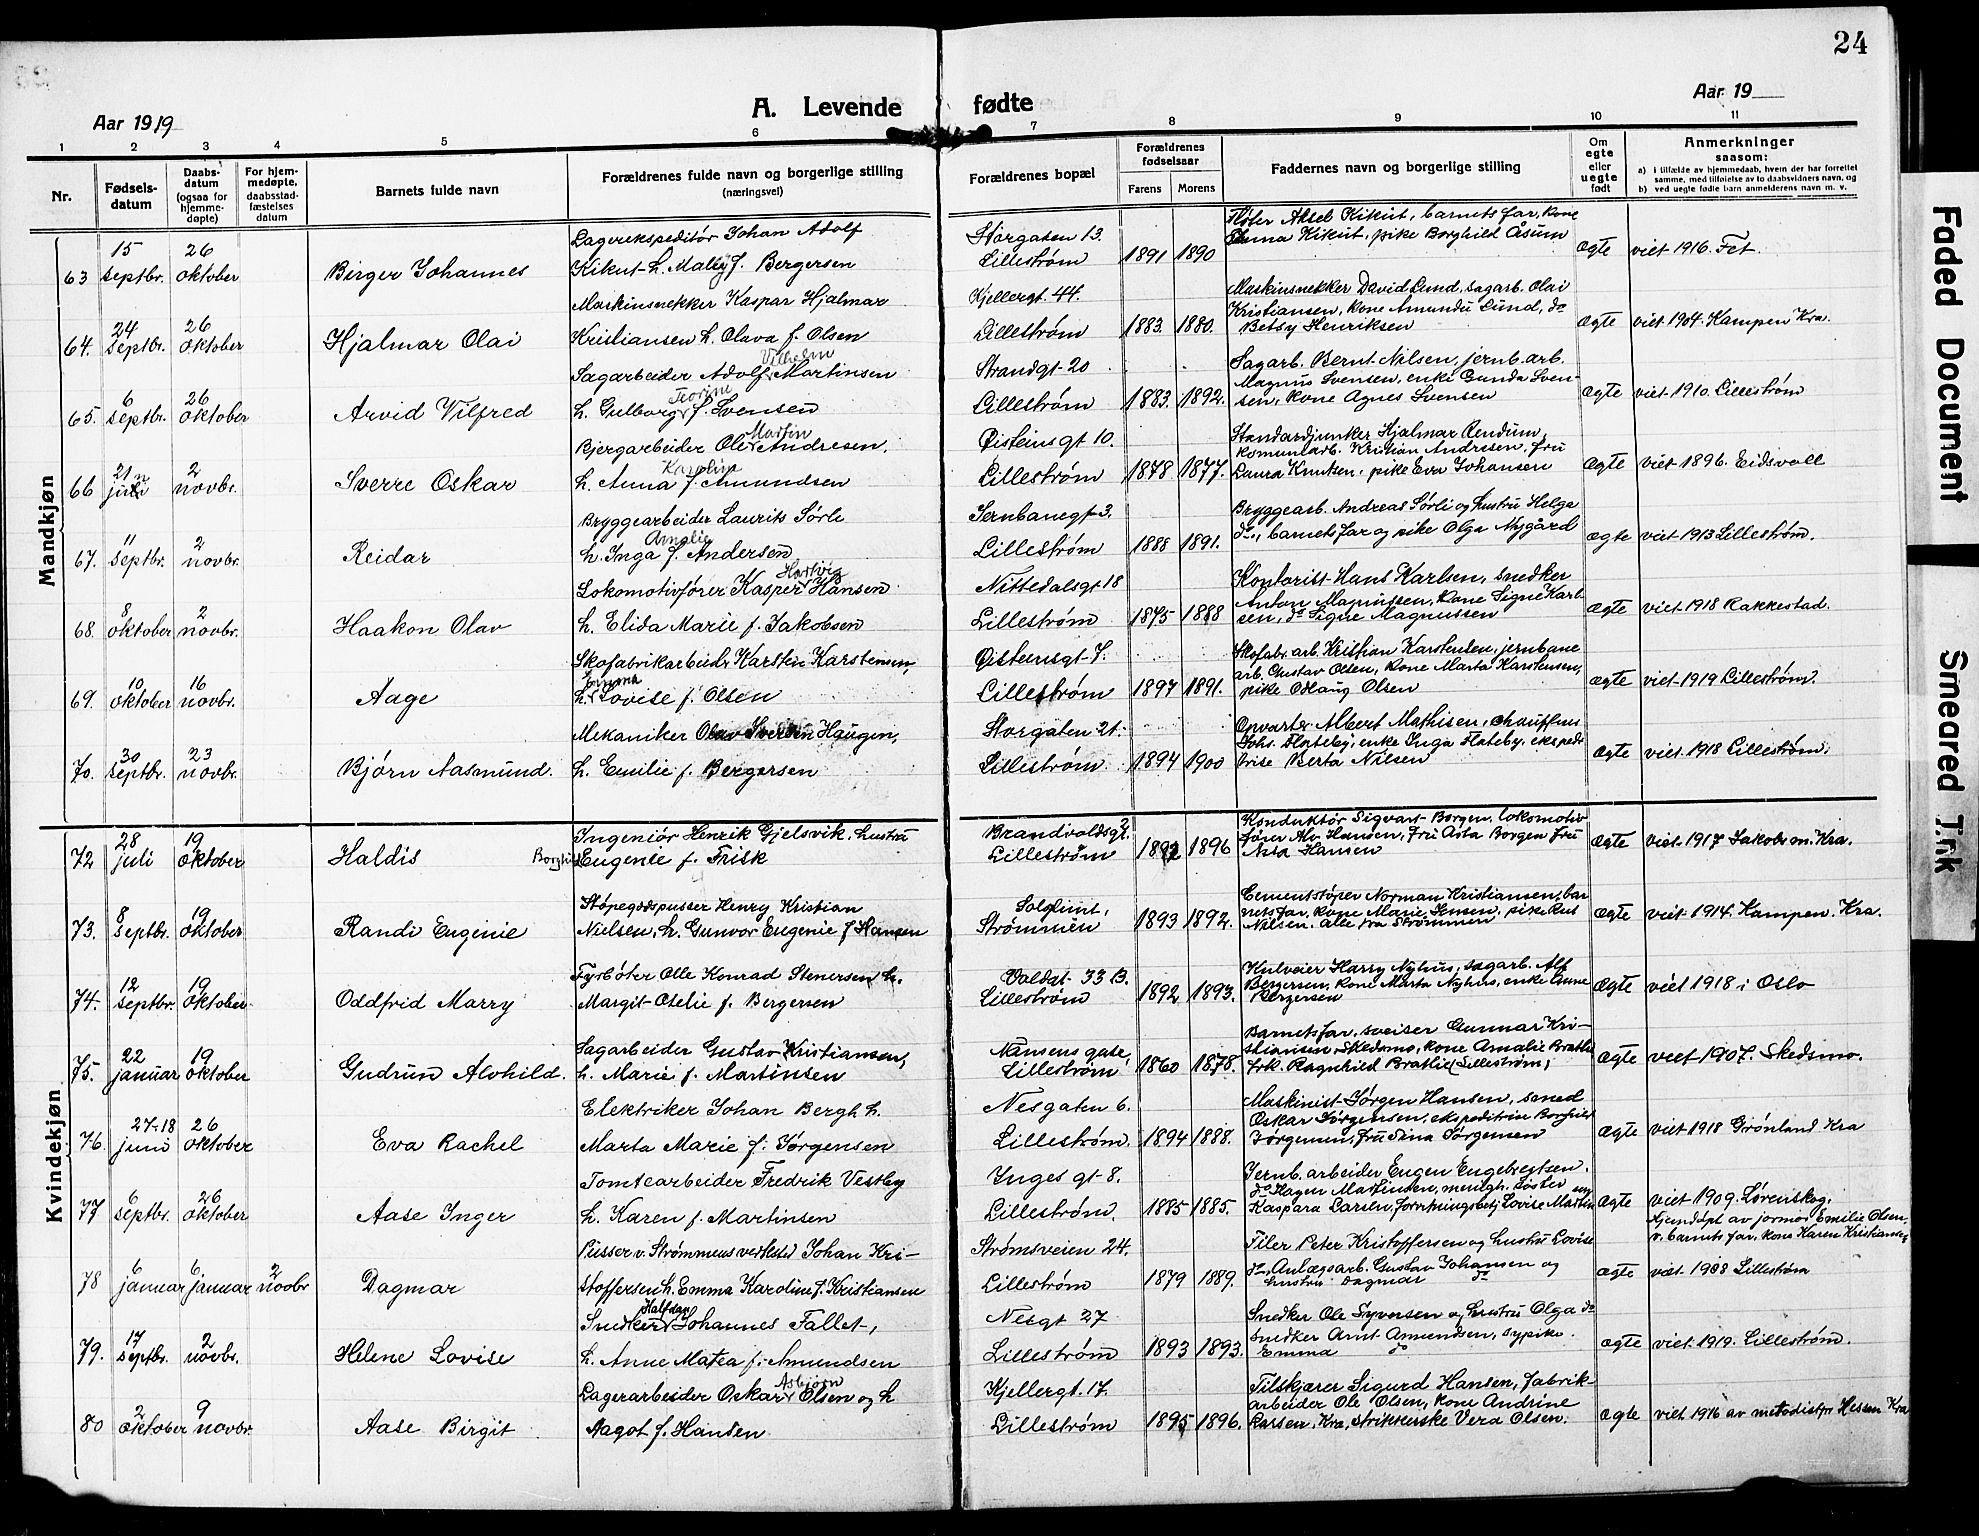 24
Aar 1919
A. Levende fødte
Aar 19
1 2 3 4 5 6 7 8 9 10 11
Nr.
Fødsels-
datum
Daabs-
datum
(ogsaa for
hjemme-
døpte)
For hjem-
medøpte,
daabsstad-
fæstelses
datum
Barnets fulde navn
Forældrenes fulde navn og borgerlige stilling
(næringsvei)
Forældrenes bopæl
Forældrenes
fødselsaar
Farens Morens
Faddernes navn og borgerlige stilling
Om
egte
eller
uegte
født
Anmerkninger
saasom:
a) i tilfælde av hjemmedaab, hvem der har forrettet
samme, med tilføielse av to daabsvidners navn, og
b) ved uegte fødte barn anmelderens navn m. v.
Mandkjøn
63 15 septbr. 26 oktober Birger Johannes
Lagerekspeditør Johan Adolf
Kikut h. Maley f. Bergersen
Storgaten 13.
Lillestrøm 1891 1890
Fløter Aksel Kikut, barnets far, kone
Anna Kikut, pike Borghild Åsum
Ægte viet 1916. Fet.
64. 24 septbr. 26 oktober Hjalmar Olai
Maskinsnekker Kaspar Hjalmar
Kristiansen h. Olava f. Olsen
Kjellergt. 44.
Lillestrøm 1883. 1880.
Maskinsnekker David Lund, sagarb. Olai
Kristiansen, kone Amunda Lund, do
Betsy Henriksen
Ægte viet 1904. Kampen Kra.
65. 6 septbr. 26 oktober Arvid Vilfred
Sagarbeider Adolf Vilhelm Martinsen
h. Gulborg Teorine f. Svensen
Strandgt 20
Lillestrøm 1883. 1892.
Sagarb. Bernt Nilsen, jernb. arb.
Magnus Svensen, enke Gunda Sven-
sen, kone Agnes Svensen
Ægte viet 1910. Lillestrøm
66 21 juni 2 novbr. Sverre Oskar
Bjergarbeider Ole Martin Andresen.
h. Anna Karoline f. Amundsen
Øisteinsgt 10.
Lillestrøm 1878 1877.
Standardjunker Hjalmar Rendum,
komunalarb. Kristian Andresen, fru
Laura Knutsen, pike Eva Johansen
Ægte viet 1896. Eidsvoll
67. 11 septbr. 2 novbr. Reidar
Bryggearbeider Laurits Sørli
h. Inga Amalie f. Andersen
Jernbanegt 3.
Lillestrøm 1888 1891.
Bryggearb. Andreas Sørli og hustru Helga
do, barnets far og pike Olga Nygård
Ægte viet 1913 Lillestrøm.
68. 8 oktober 2 novbr. Haakon Olav
Lokomotivfører Kasper Hartvig Hansen
h. Elida Marie f. Jakobsen
Nittedalsgt 18
Lillestrøm 1875 1888
Kontorist Hans Karlsen, snedker
Anton Magnussen, kone Signe Karl-
sen, do Signe Magnussen
Ægte viet 1918 Rakkestad.
69. 10 oktober 16 novbr. Aage
Skofabrikarbeider Karsten Karstensen,
h. Emma Lovise f. Olsen
Øisteinsgt 7.
Lillestrøm 1897 1891.
Skofabr. arb. Kristian Karstensen, jernbane
arb. Gustav Olsen, kone Marta Karstensen,
pike Aslaug Olsen
Ægte viet 1919 Lillestrøm.
70. 30 septbr. 23 novbr. Bjørn Aasmund.
Mekaniker Olav Haugen,
h. Emilie f. Bergersen
Storgaten 21.
Lillestrøm. 1894 1900
Opvarter Albert Mathisen, chauffeur
Johs. Flateby, enke Inga Flateby, ekspedi
trise Berta Nilsen
Ægte viet 1918 Lillestrøm.
Kvindekjøn
72 28 juli 19 oktober Haldis Borghild
Ingeniør Henrik Gjelsvik, hustru
Eugenie f. Frisk
Brandvoldsgt. 2
Lillestrøm 1892 1896
Konduktør Sigvart Borgen, lokomotiv
fører Alv. Hansen, fru Asta Borgen fru
Hansen
Ægte viet 1917 Jakobs m. Kra.
73. 8 septbr. 19 oktober Randi Eugenie
Støpegodspusser Henry Kristian
Nielsen, h. Gunvor Eugenie f Hansen
Solglimt,
Strømmen 1893 1892.
Cementstøper Norman Kristiansen, bar
nets far, kone Marie Jensen, pike
Nilsen. alle fra Strømmen
Ægte viet 1914. Kampen. Kra.
74. 12 septbr. 19 oktober Oddfrid Marry
Fyrbøter Olle Konrad Stenersen h.
Margit Otelie f. Bergersen
Voldgt. 33 B.
Lillestrøm 1892 1893.
Harry Nyhus, sagarb. Alf
Bergersen, kone Marta Nyhus, enke Anne
Bergersen
Ægte viet 1918 i Oslo
75. 22 januar 19 oktober Gudrun Alvhild.
Sagarbeider Gustav Kristiansen,
h. Marie f. Martinsen
Nansens gate,
Lillestrøm 1860 1878.
Barnets far. sveiser Gunnar Kri-
stiansen, Skedsmo, kone Amalie Bratlie
frk. Ragnhild Bratlie (Lillestrøm)
Ægte viet 1907. Skedsmo.
76. 27-18 juni 26 oktober Eva Rachel
Elektriker Johan Bergh h.
Marta Marie f. Jørgensen
Nesgaten 6.
Lillestrøm. 1894 1888.
Maskinist Jørgen Hansen, smed
Oskar Jørgensen, ekspeditrice Borghild
Jørgensen, fru Sina Jørgensen
Ægte viet 1918 Grønland Kra
77 6 septbr. 26 oktober Aase Inger
Tomtearbeider Fredrik Vestby
h. Karen f. Martinsen
Inges gt 8.
Lillestrøm. 1885 1885.
Jernb. arbeider Eugen Engebretsen.
do Hagen Martinsen, menigh. søster
Kaspara Larsen, forretningsbetj Lovise Martin
Ægte viet 1909. Lørenskog.
78 6 januar 6 januar 2 novbr Dagmar
Pusser v. Strømmens verksted Johan Kri-
stoffersen h. Emma Karoline f. Kristiansen
Strømsveien 24.
Lillestrøm 1879 1889.
Filer Peter Kristoffersen og hustru Lovise
do Anlægsarb. Gustav Johansen og
hustru Dagmar do
Ægte
Hjemdøpt av jormor Emilie Olsen,
v. barnets far, kone Karen Kristiansen
viet 1908 Lillestrøm
79. 17 septbr. 2 novbr. Helene Lovise
Snedker Halfdan Johannes Fallet,
h. Anne Matea f. Amundsen
Nesgt 27
Lillestrøm 1893 1893.
Snedker Ole Syversen og hustru Olga do
snedker Arnt Amundsen, sypike.
Emma do
Ægte viet 1919. Lillestrøm.
80 2 oktober 9 novbr. Aase Birgit
Lagerarbeider Oskar Asbjørn Olsen og h
Aagot f. Hansen
Kjellergt. 17.
Lillestrøm 1895 1896.
Tilskjærer Sigurd Hansen, fabrik-
arbeider Ole Olsen, kone Andrine
Larsen, Kra, strikkerske Vera Olsen.
Ægte viet 1916 av metodistpr Hessen Kra
Faded Document
Smeared Ink